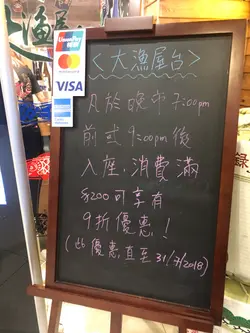 UnionPay
銀联
mastercard
VISA
<大漁屋台>
凡於晚市7:00pm
前或9:00pm後
入座,消費滿
$200可享有
9折優惠!
(此優惠直至31/7/2018)